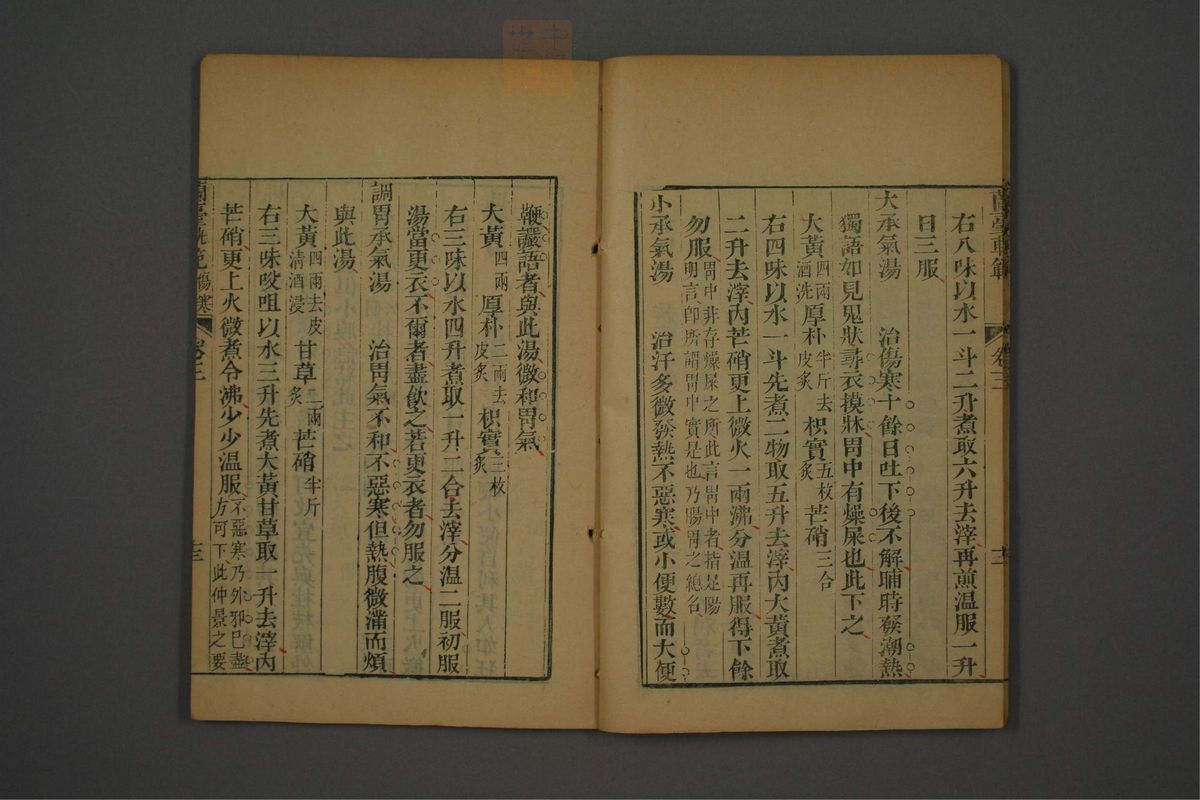 右八味以水一斗二升煮取六升去滓再煎温服一升
日三服
大承氣湯　治傷寒十餘日吐下後不解晡時發潮熱
獨語如見鬼狀尋衣摸牀胃中有燥屎也此下之
大黃四兩酒洗厚朴半斤去皮炙枳實五枚炙芒硝三合
右四味以水一斗先煮二物取五升去滓内大黃煮取
二升去滓内芒硝更上微火一兩沸分温再服得下餘
勿服胃中非存燥屎之所此言胃中者指是陽明言卽所謂胃中實是也乃腸胃之總名
小承氣湯　治汗多微發熱不惡寒或小便數而大便
卷三
鞭讝語者與此湯微和胃氣
大黃四兩厚朴二兩去皮炙枳實三枚炙
右三味以水四升煮取一升二合去滓分温二服初服
湯當更衣不爾者盡飲之若更衣者勿服之
調胃承氣湯　治胃氣不和不惡寒但熱腹微滿而煩
與此湯
大黃四兩去皮清酒浸甘草二兩炙芒硝半斤
右三味㕮咀以水三升先煮大黃甘草取一升去滓内
芒硝更上火微煮令沸少少温服不惡寒乃外邪已盡方可下此仲景之要
卷三